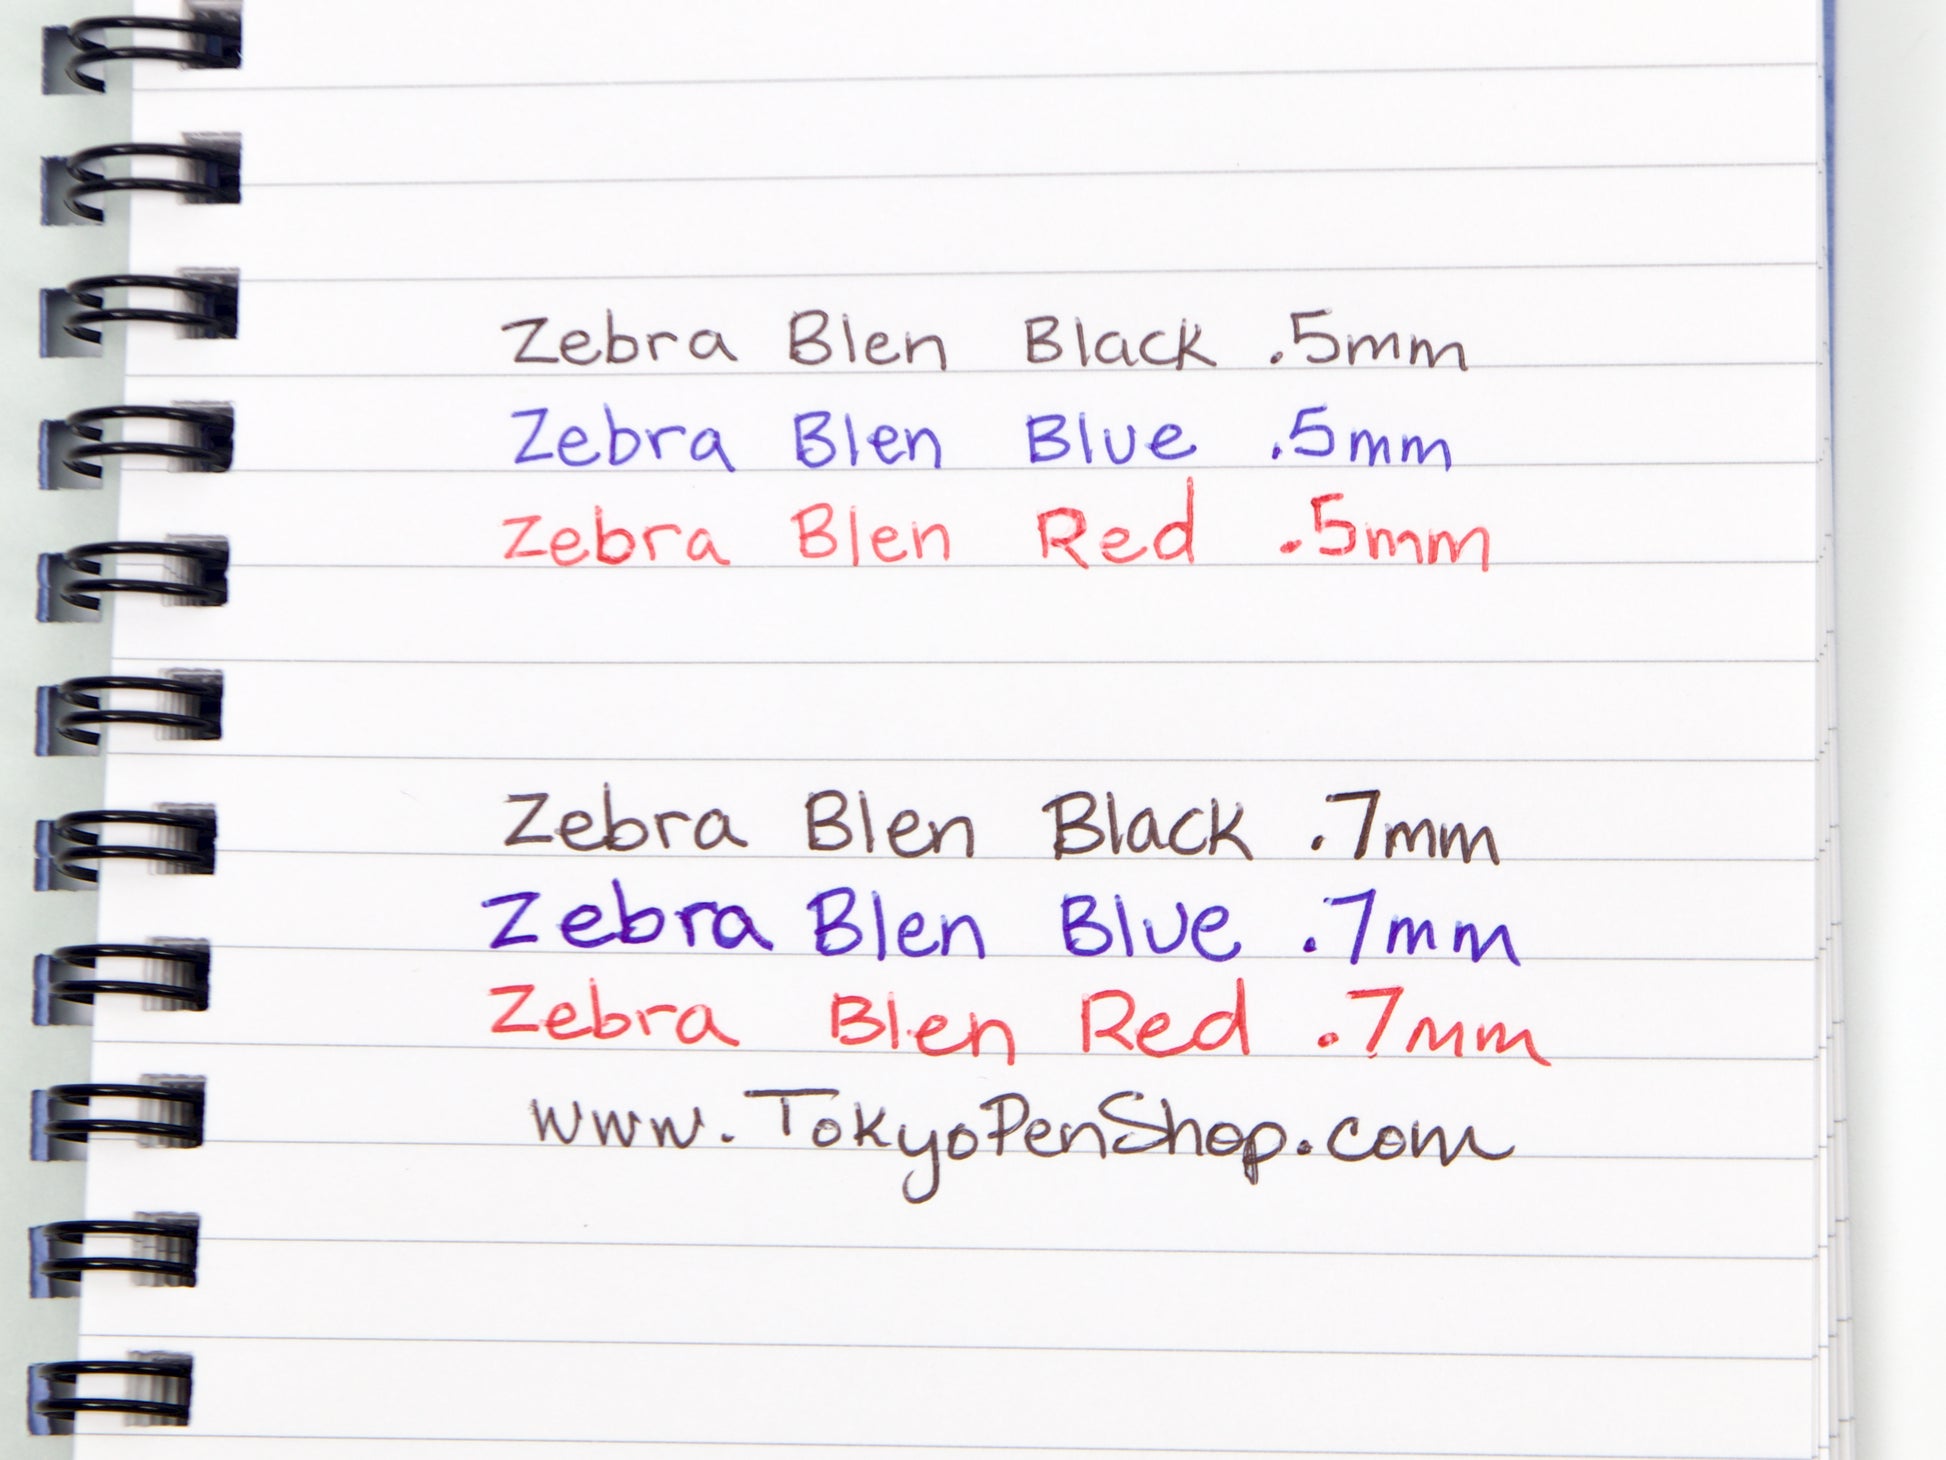 Zebra Blen Black .5mm
Zebra Blen Blue .5mm
Zebra Blen Red .5mm
Zebra Blen Black .7mm
Zebra Blen Blue .7mm
Zebra Blen Red .7mm
www.TokyoPenShop.com